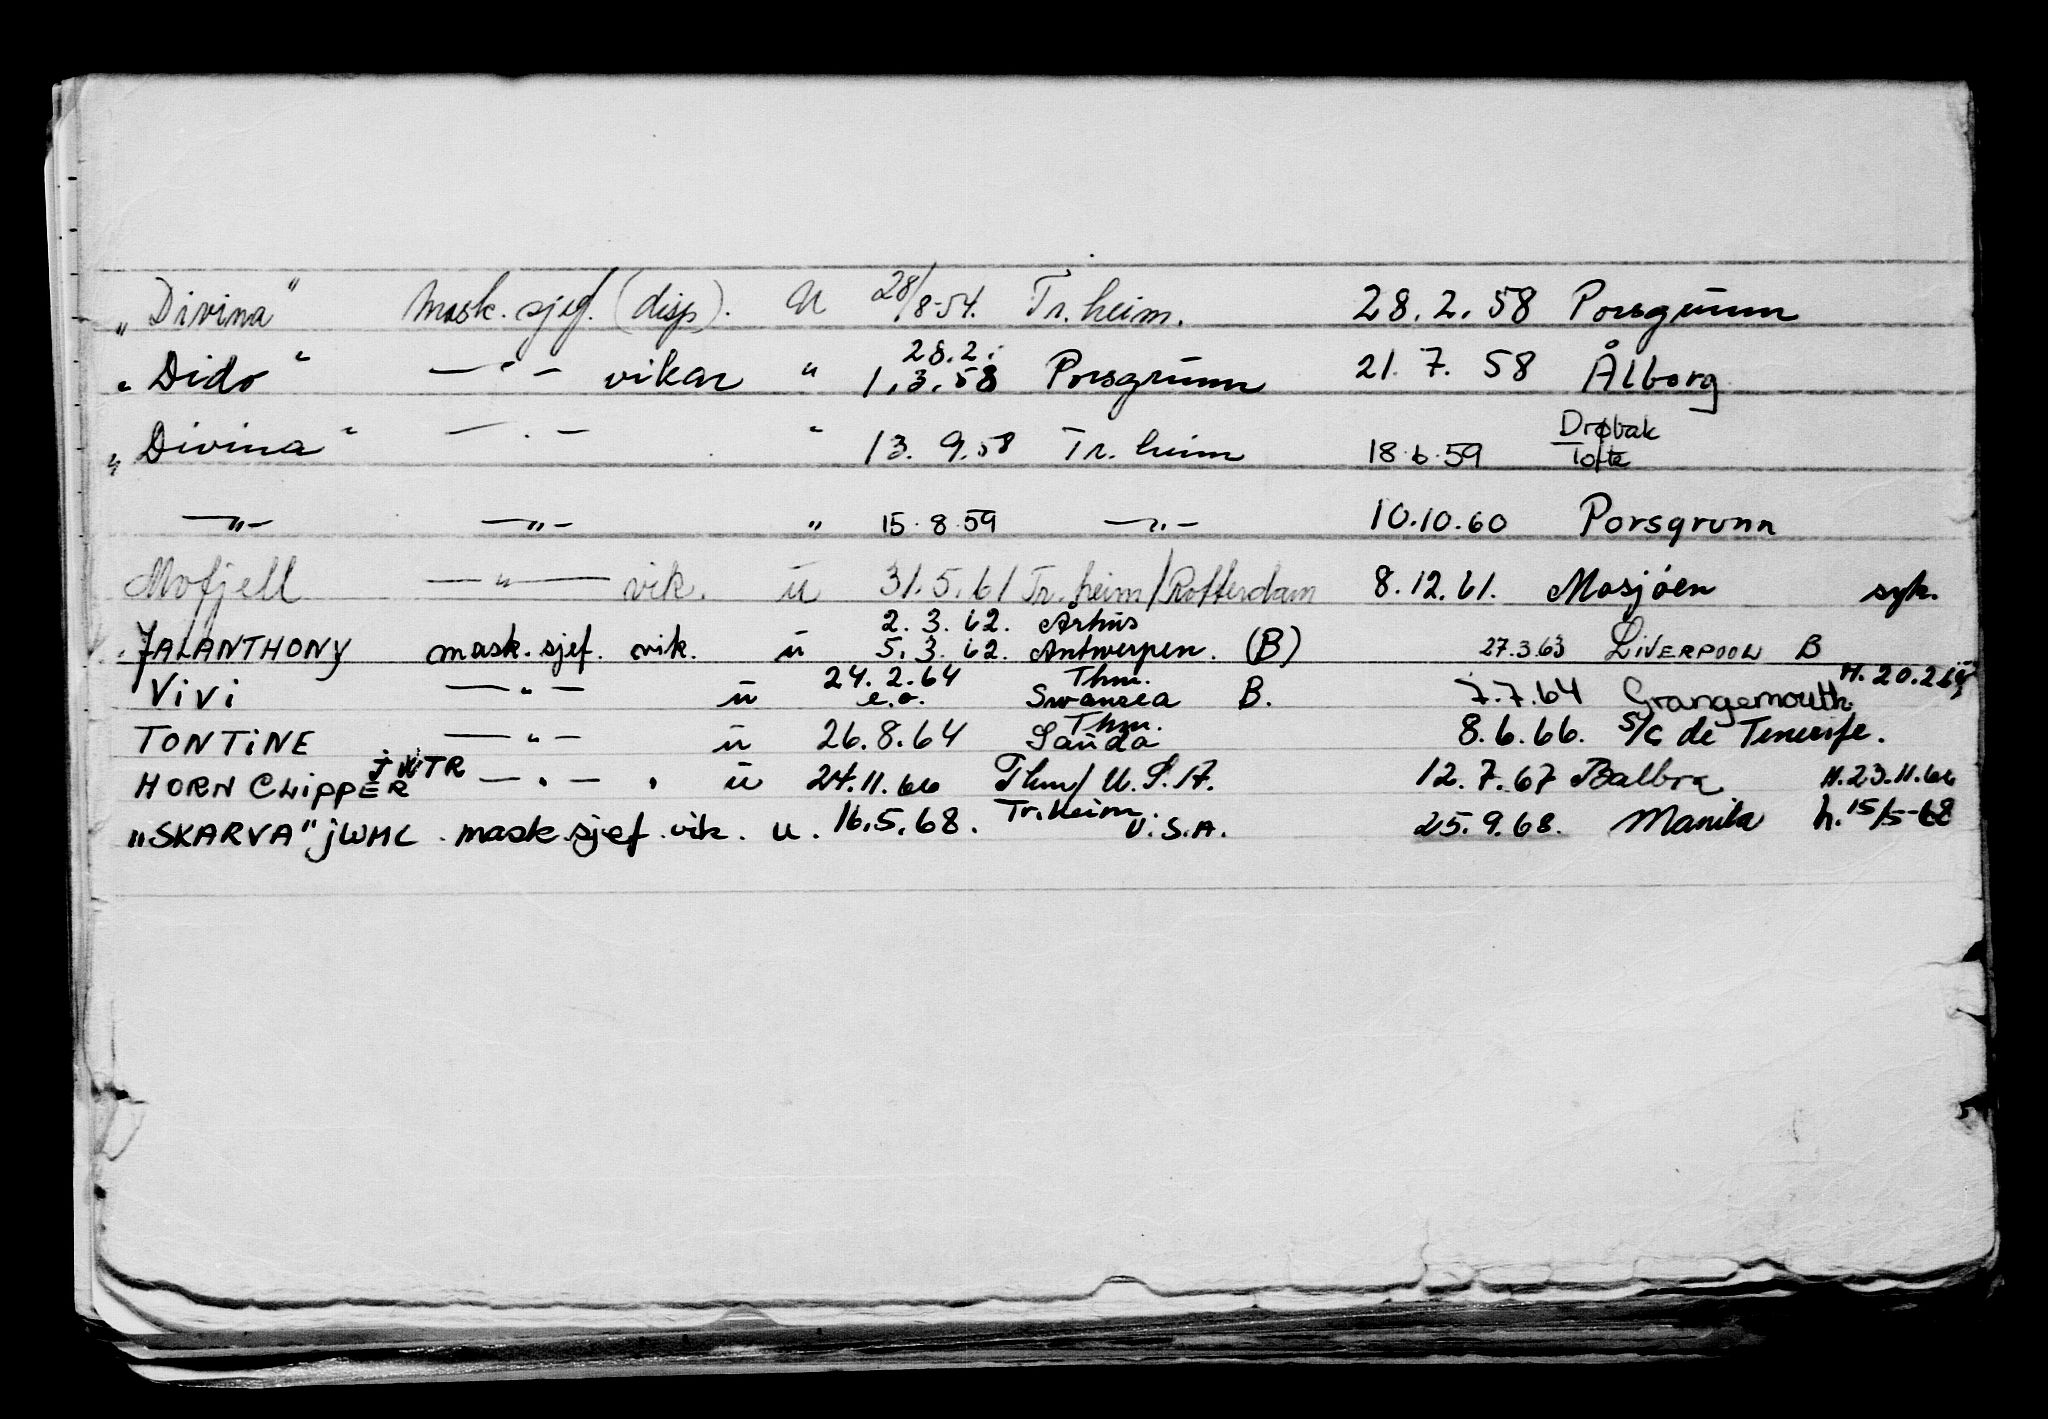 „Divina" Mask. sjef. (disp). U 28/8-54. Tr. heim. 28.2.58 Porsgrunn
„Dido" —"— vikar " 28.2. 1.3.58 Porsgrunn 21.7.58 Ålborg
„Divina" —"— " 13.9.58 Tr. heim 18.6.59 Drøbak Tofte
—"— —"— " 15.8.59 —"— 10.10.60 Porsgrunn
Mofjell —"— vik. u 31.5.61 Tr. heim/Rotterdam 8.12.61. Mosjøen syk.
JALANTHONY mask. sjef. vik. u 2.3.62. Århus 5.3.62. Antwerpen. (B) 27.3.63 LIVERPOOL B
ViVi —"— u 24.2.64 e.o. Thm. Swansea B. 7.7.64 Grangemouth. H. 20.2.64
TONTINE —"— u 26.8.64 Thm. Sauda 8.6.66. S/C de Tenerife.
HORN CLIPPER jWTR —"— " u 24.11.66 Thm/U.S.A. 12.7.67 Balboa H.23.11.66
„SKARVA" jWML . mask.sjef.vik. u. 16.5.68. Tr.heim U.S.A. 25.9.68. Manila h.15/5-68